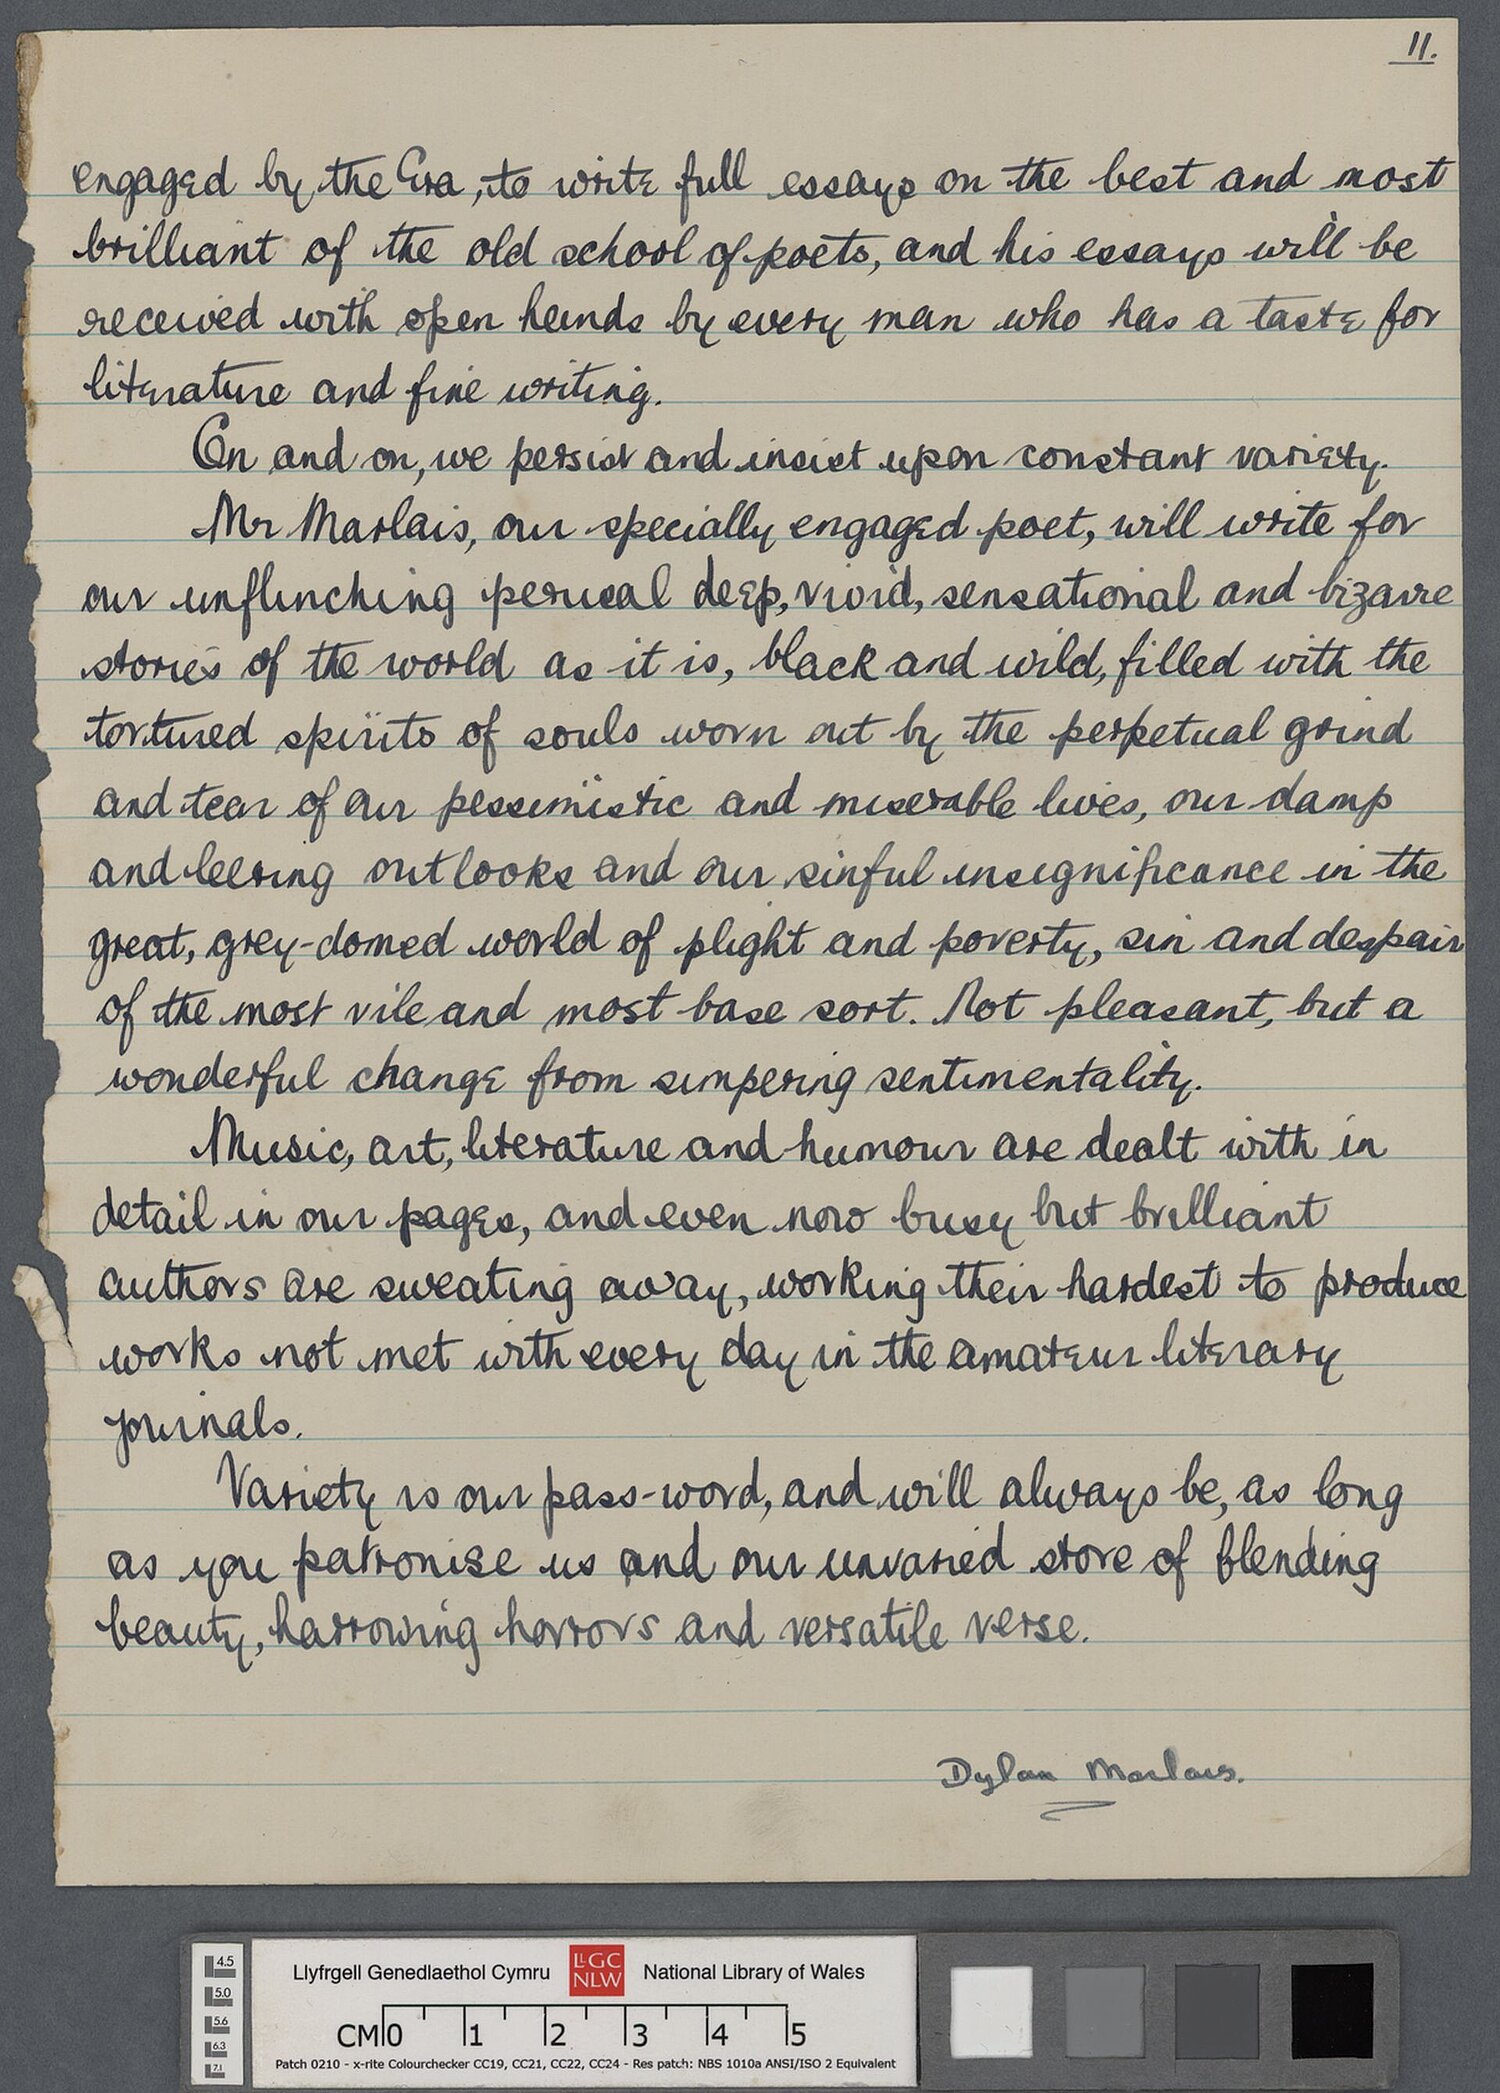 11.
engaged by the Era, to write full essays on the best and most
brilliant of the old school of poets, and his essays will be
received with open hands by every man who has a taste for
literature and fine writing.
On and on, we persist and insist upon constant variety.
Mr Marlais, our specially engaged poet, will write for
our unflinching perusal deep, vivid, sensational and bizarre
stories of the world as it is, black and wild, filled with the
tortured spirits of souls worn out by the perpetual grind
and tear of our pessimistic and miserable lives, our damp
and leering outlooks and our sinful insignificance in the
great, grey-domed world of plight and poverty, sin and despair
of the most vile and most base sort. Not pleasant, but a
wonderful change from simpering sentimentality.
Music, art, literature and humour are dealt with in
detail in our pages, and even now busy but brilliant
authors are sweating away, working their hardest to produce
works not met with every day in the amateur literary
journals.
Variety is our pass-word, and will always be, as long
as you patronise us and our unvaried store of blending
beauty, harrowing horrors and versatile verse.
Dylan Marlais.
4.5
5.0
5.6
6.3
7.1
Llyfrgell Genedlaethol Cymru LLGC NLW National Library of Wales
CM 0 1 2 3 4 5
Patch 0210 - x-rite Colourchecker CC19, CC21, CC22, CC24 - Res patch: NBS 1010a ANSI/ISO 2 Equivalent